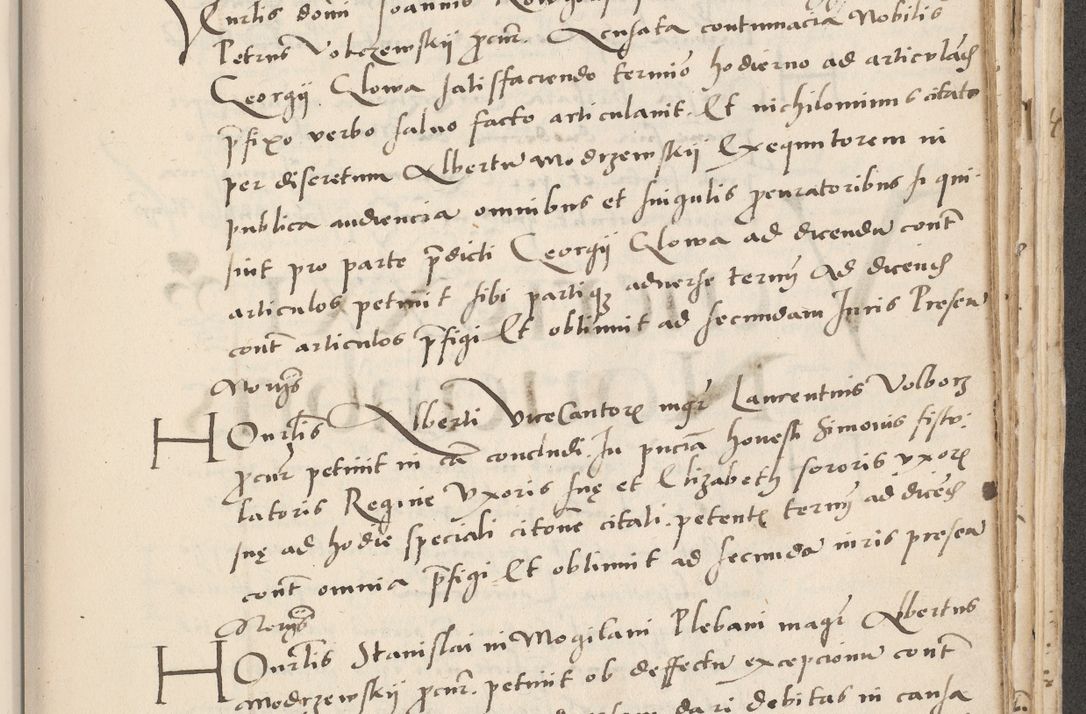 Petrus Volczewskij procur. Acusata contumacia Nobilis
Georgij Glowa satisfaciendo termino hodierno ad articulandum
prefixo verbo salvo facto articulavit. Et nichilominus citato
per discretum Albertum Modrzewskij Exequutorem in
publica audiencia omnibus et singulis procuratoribus si qui
sint pro parte predicti Georgij Glowa ad dicendum contra
articulos petivit sibi partique adverse terminum ad dicendum
contra articulos prefigi Et obtinuit ad secundam Juris Presen
Honorabilis Alberti ViceCantoris magister Laurentius Volborz
procur petivit in causa concludi. In presencia honesti Simonis fisto-
latoris Regine Uxoris sue et Elizabeth sororis uxoris
sue ad hodie speciali citatione citati. petentis terminum ad dicendum
contra omnia prefigi Et obtinuit ad secundam iuris presen
Honorabilis Stanislai in Mogilani Plebani magister Albertus
Modrzewskij procur. petivit ob deffectum excepcionum contra
dari debitas in causa